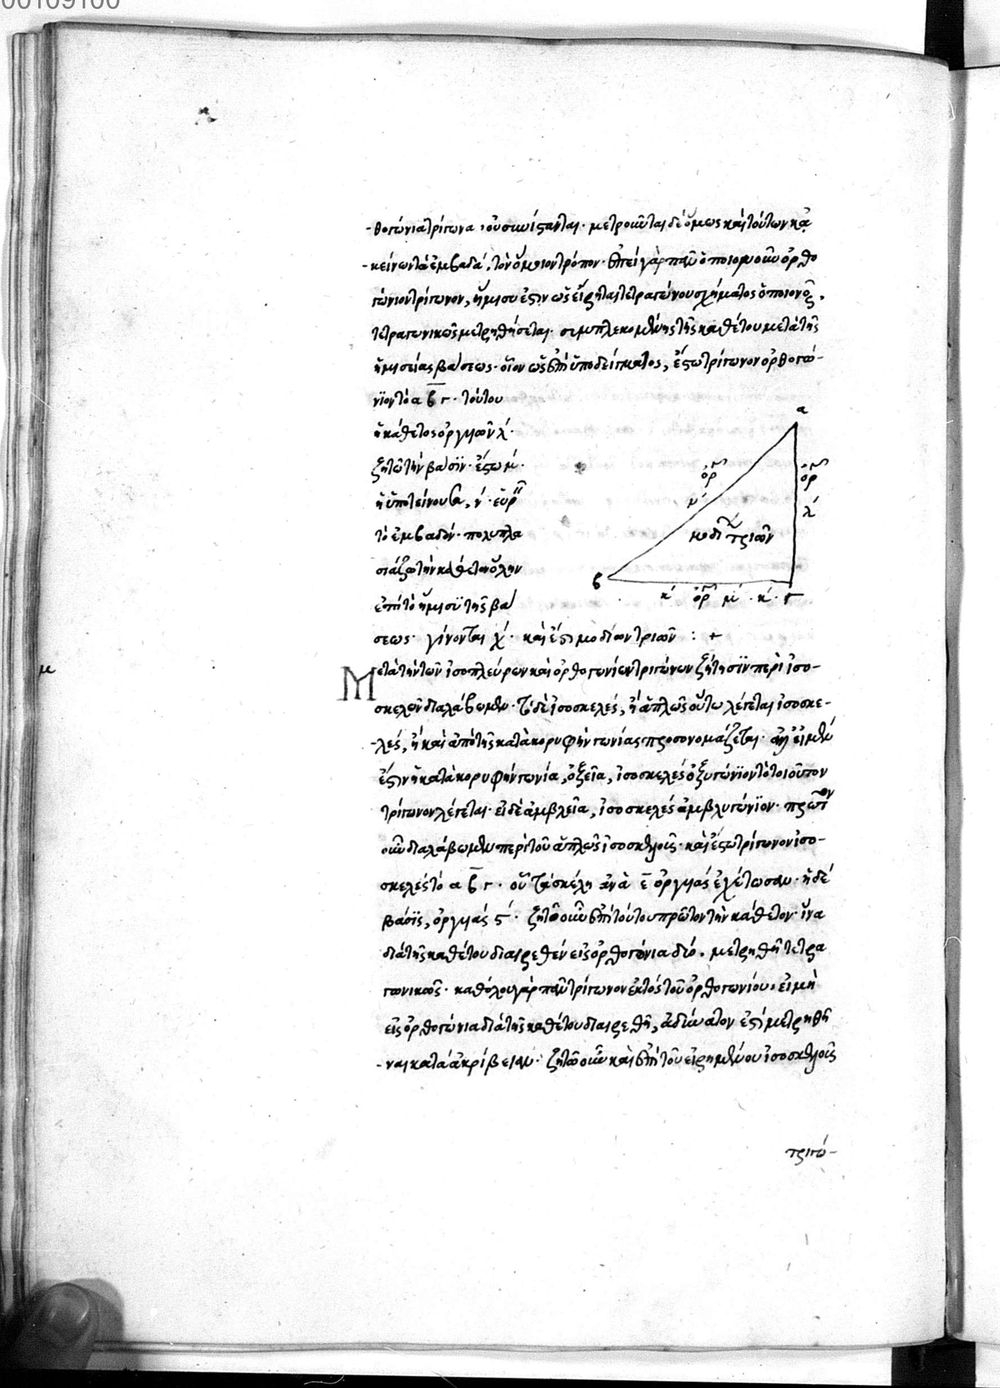 -θογώνια τρίγωνα, οὐ συνίστανται. μετροῦνται δὲ ὅμως καὶ τούτων κἀ
-κείνων τὰ ἐμβαδά, τὸν ὅμοιον τρόπον. ἐπεὶ γὰρ πᾶν ὁποιονοῦν ὀρθο
γώνιον τρίγωνον, ἥμισυ ἐστὶν ὡς εἴρηται τετραγώνου σχήματος
τετραγωνικῶς μετρηθήσεται. συμπλεκομένης τῆς καθέτου μετὰ τῆς
ἡμισείας βάσεως. οἷον ὡς ἐπὶ ὑποδείγματος, ἔστω τρίγωνον ὀρθογώ-
νϊον τὸ α β γ. τούτου
ἡ κάθετος ὀργυιῶν λ.
ζητῶ τὴν βάσϊν. ἔστω μ.
ἡ ὑποτείνουσα, ν.
τὸ ἐμβαδόν. πολυπλα
σιάζω τὴν κάθετον ὅλην
ἐπὶ τὸ ἥμισϋ τῆς βά
σεως. γίνονται χ. καὶ ἔστι μοδίων τριῶν :+
α
ὀρ
ν
ὀρ
λ
μοδί τριῶν
β κ ὀρ μ κ γ
μ
Μετὰ τὴν τῶν ἰσοπλεύρων καὶ ὀρθογωνίων τριγώνων ζήτησϊν περὶ ἰσο-
σκελῶν διαλάβωμεν. τὸ δὲ ἰσοσκελὲς, ἢ ἁπλῶς οὕτω λέγεται ἰσοσκε-
-λές, ἢ καὶ ἀπὸ τῆς κατὰ κορυφὴν γωνίας προσονομάζεται. εἰ μὲν
ἐστὶν ἡ κατὰ κορυφὴν γωνία, ὀξεῖα, ἰσοσκελὲς ὀξυγώνϊον τὸ τοιοῦτον
τρίγωνον λέγεται. εἰ δὲ ἀμβλεῖα, ἰσοσκελὲς ἀμβλυγώνϊον. πρῶτον
οὖν διαλάβωμεν περὶ τοῦ ἁπλῶς ἰσοσκελοῦς. καὶ ἔστω τρίγωνον ἰσο-
σκελὲς τὸ α β γ. οὗ τὰ σκέλη ἀνὰ ε ὀργυιὰς ἐχέτωσαν. ἡ δὲ
βάσϊς, ὀργυιὰς ϛ. ζητῶ οὖν ἐπὶ τούτου πρῶτον τὴν κάθετον. ἵνα
διὰ τῆς καθέτου διαιρεθὲν εἰς ὀρθογώνια δύο. μετρηθῆ τετρα
γωνικῶς. καθόλου γὰρ πᾶν τρίγωνον ἐκτὸς τοῦ ὀρθογωνίου, εἰ μὴ
εἰς ὀρθογώνια διὰ τῆς καθέτου διαιρεθῆ, ἀδύνατον ἐστὶ μετρηθῆ
-ναι κατὰ ἀκρίβειαν. ζητῶ οὖν καὶ ἐπὶ τοῦ εἰρημένου ἰσοσκελοῦς
τριγώ-